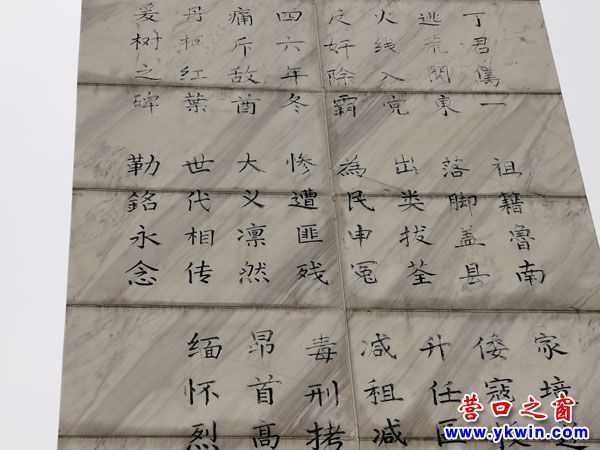 丁君一 祖籍魯南 家境
逃荒関東 落脚盖县 倭寇投
火线入党 出类拔荃 升任区
反奸除霸 為民申冤 减租减
四六年冬 惨遭匪残 毒刑拷
痛斥敌酋 大义凛然 昂首高
丹枫红葉 世代相传 缅怀烈
爰树之碑 勒銘永念
营口之窗
www.ykwin.com